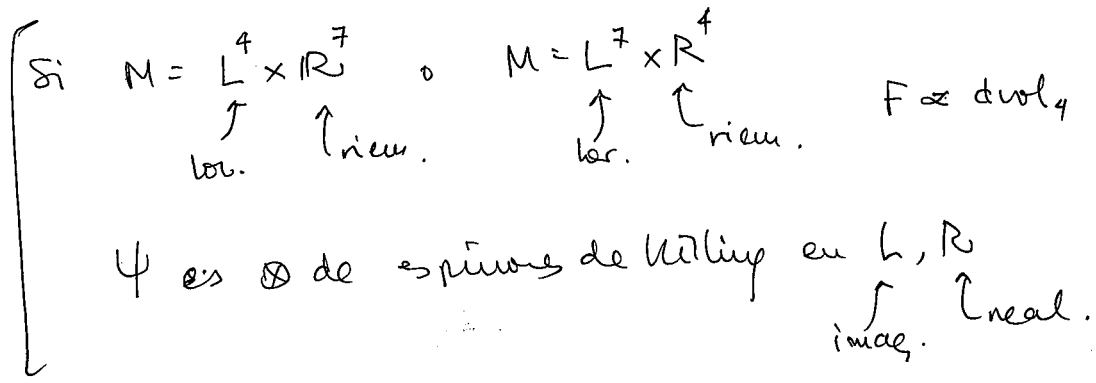 Si M = L⁴ × R⁷ o M = L⁷ × R⁴ F ∝ dvol₄
lor. riem. lor. riem.
Ψ es ⊗ de espinores de Killing en L, R
imag. real.